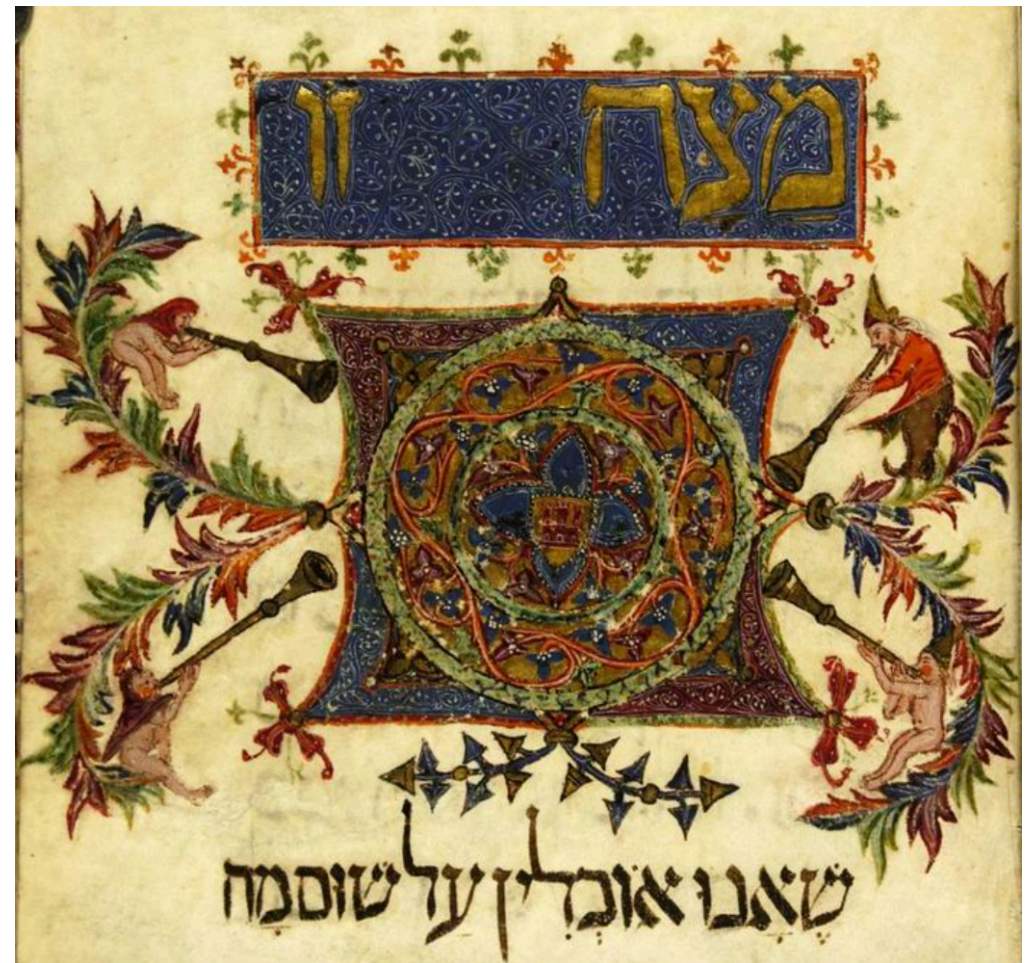 מַצָּה זו
שֶׁאָנוּ אוֹכְלִין עַל שׁוּם מַה